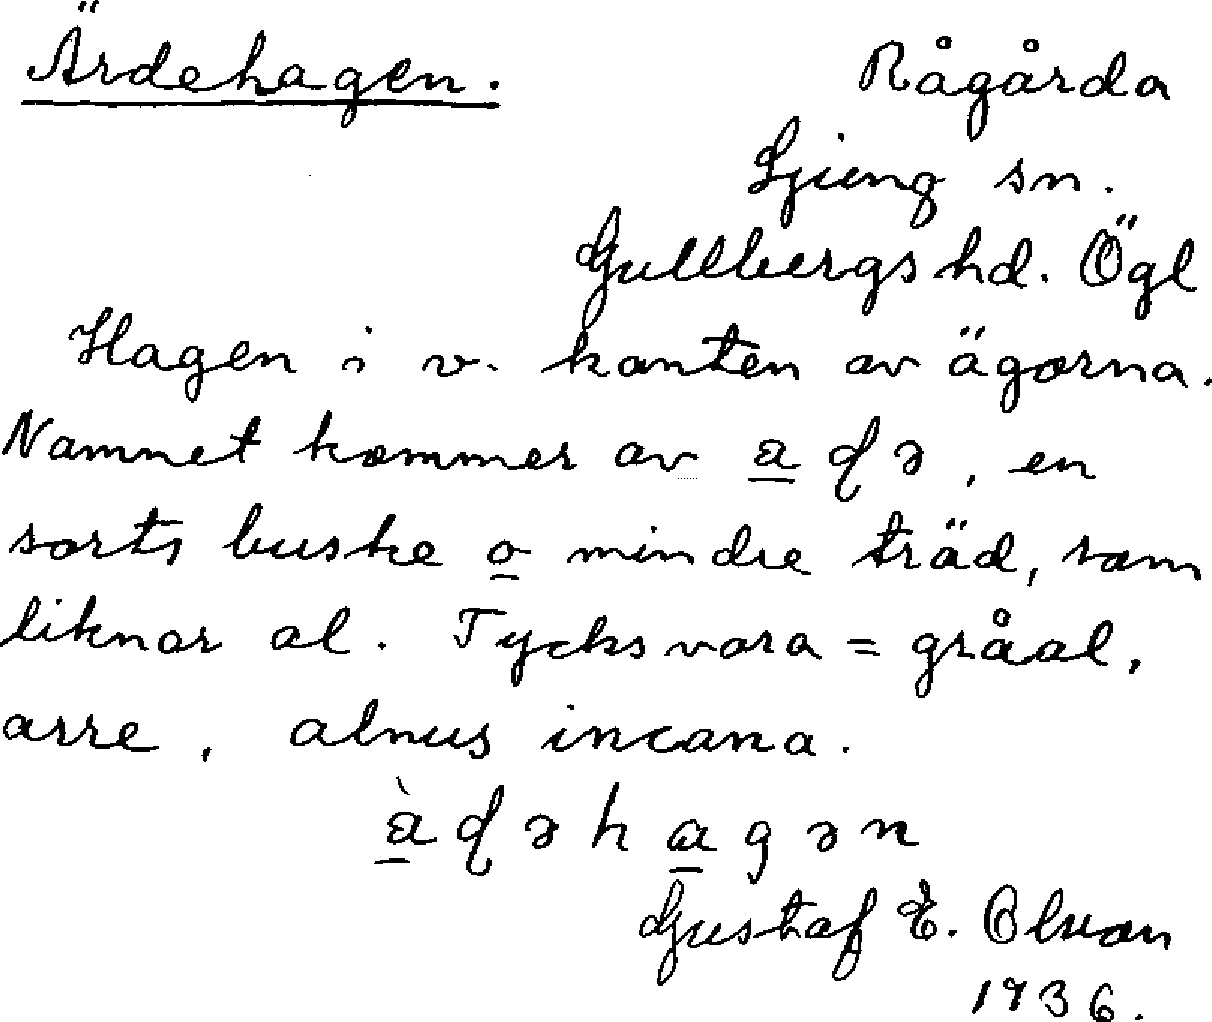 Ärdehagen. Rågårda
Ljung sn.
Gullbergs hd. Ögl
Hagen i v. kanten av ägorna.
Namnet kommer av a̲ ɖ ə, en
sorts buske o̲ mindre träd, som
liknar al. Tycks vara = gråal,
arre, alnus incana.
æ̲̀ ɖ ə h a̲ g ə n
Gustaf E. Olson
1936.